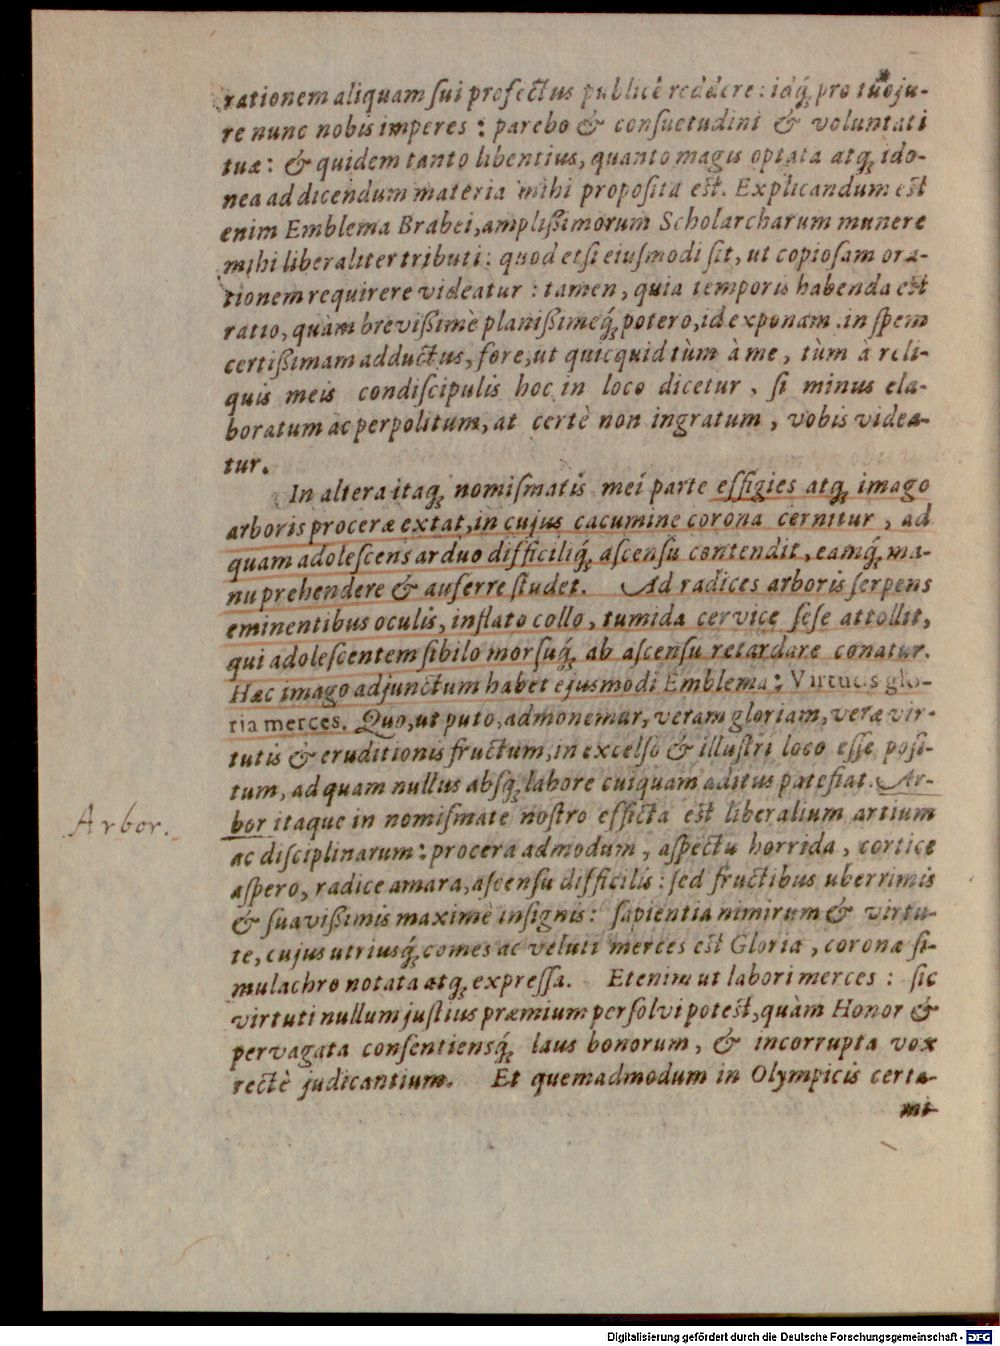 rationem aliquam ſui profectus publicè reddere: idq́; pro tuo ju-
re nunc nobis imperes: parebo & conſuetudini & voluntati
tuæ: & quidem tanto libentius, quanto magis optata atq; ido-
nea ad dicendum materia mihi propoſita est. Explicandum est
enim Emblema Brabei, ampliſſimorum Scholarcharum munere
mihi liberaliter tributi: quod etſi eiuſmodi ſit, ut copioſam ora-
tionem requirere videatur: tamen, quia temporis habenda est
ratio, quàm breviſſimè planiſſimeq́; potero, id exponam. in ſpem
certiſſimam adductus, fore, ut quicquid tùm à me, tùm à reli-
quis meis condiſcipulis hoc in loco dicetur, ſi minus ela-
boratum ac perpolitum, at certè non ingratum, vobis videa-
tur.
In altera itaq; nomiſmatis mei parte effigies atq; imago
arboris proceræ extat, in cujus cacumine corona cernitur, ad
quam adoleſcens arduo difficiliq́; aſcenſu contendit, eamq́; ma-
nu prehendere & auferre ſtudet. Ad radices arboris ſerpens
eminentibus oculis, inflato collo, tumida cervice ſeſe attollit,
qui adoleſcentem ſibilo morſuq́; ab aſcenſu retardare conatur.
Hæc imago adjunctum habet ejusmodi Emblema: Virtutis glo-
ria merces. Quo, ut puto, admonemur, veram gloriam, veræ vir-
tutis & eruditionis fructum, in excelſo & illuſtri loco eſſe poſi-
tum, ad quam nullus abſq; labore cuiquam aditus patefiat. Ar-
Arbor.
bor itaque in nomiſmate noſtro efficta est liberalium artium
ac diſciplinarum: procera admodum, aſpectu horrida, cortice
aſpero, radice amara, aſcenſu difficilis: ſed fructibus uberrimis
& ſuaviſſimis maximè inſignis: ſapientia nimirum & virtu-
te, cujus utriusq́; comes ac veluti merces est Gloria, coronæ ſi-
mulachro notata atq; expreſſa. Etenim ut labori merces: ſic
virtuti nullum juſtius præmium perſolvi potest, quàm Honor &
pervagata conſentiensq́; laus bonorum, & incorrupta vox
rectè judicantium. Et quemadmodum in Olympicis certa-
mi-
Digitalisierung gefördert durch die Deutsche Forschungsgemeinschaft - DFG